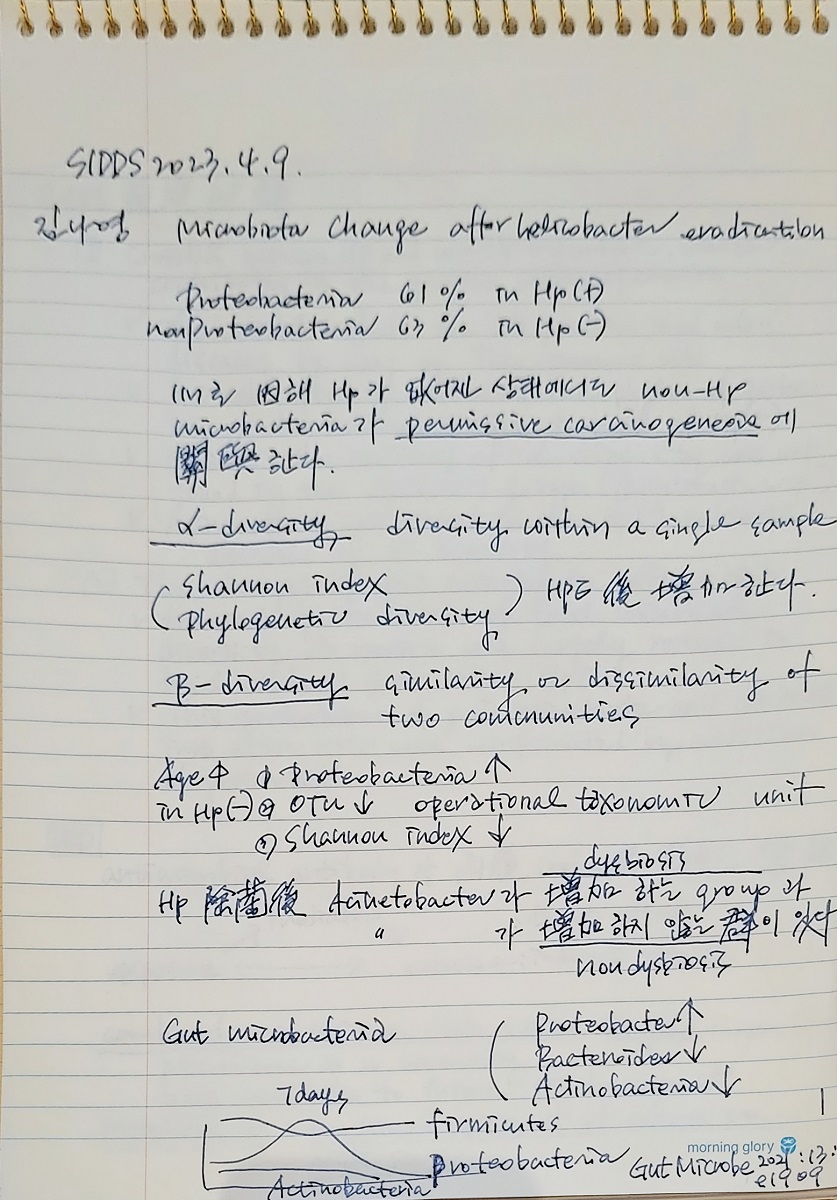 SIDDS 2023. 4. 9.
김나영 Microbiota change after helicobacter eradication
Proteobacteria 61 % in Hp(+)
nonProteobacteria 63 % in Hp(-)
이로 因해 Hp가 없어진 상태에서도 non-Hp
microbacteria가 permissive carcinogenesis에
關與한다.
α-diversity diversity within a single sample
( Shannon index
phylogenetic diversity ) HPE 後 增加한다.
β-diversity similarity or dissimilarity of
two communities
Age↑ ① Proteobacteria ↑
in Hp(-) ② OTU ↓ operational taxonomic unit
③ Shannon index ↓
dysbiosis
Hp 除菌後 Acinetobacter가 增加 하는 group과
〃 가 增加 하지 않는 群이 있다
non dysbiosis
Gut microbacteria ( Proteobacter ↑
Bacteroides ↓
Actinobacteria ↓
7days
firmicutes
Proteobacteria
Actinobacteria
Gut Microbe 2021 : 13 :
e19 09
morning glory
1